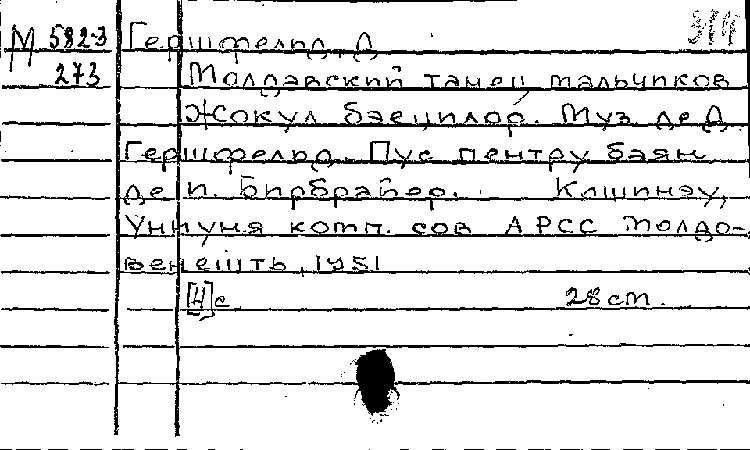 М 582-3 Гершфельд, Д 314
273 Молдавский танец мальчиков
Жокул бэецилор. Муз. де Д
Гершфельд. Пус пентру баян
де п. Бирбрайер. Кишинэу,
Униуня комп. сов АРСС Молдо-
венешть, 1951
[4] с 28 cm.